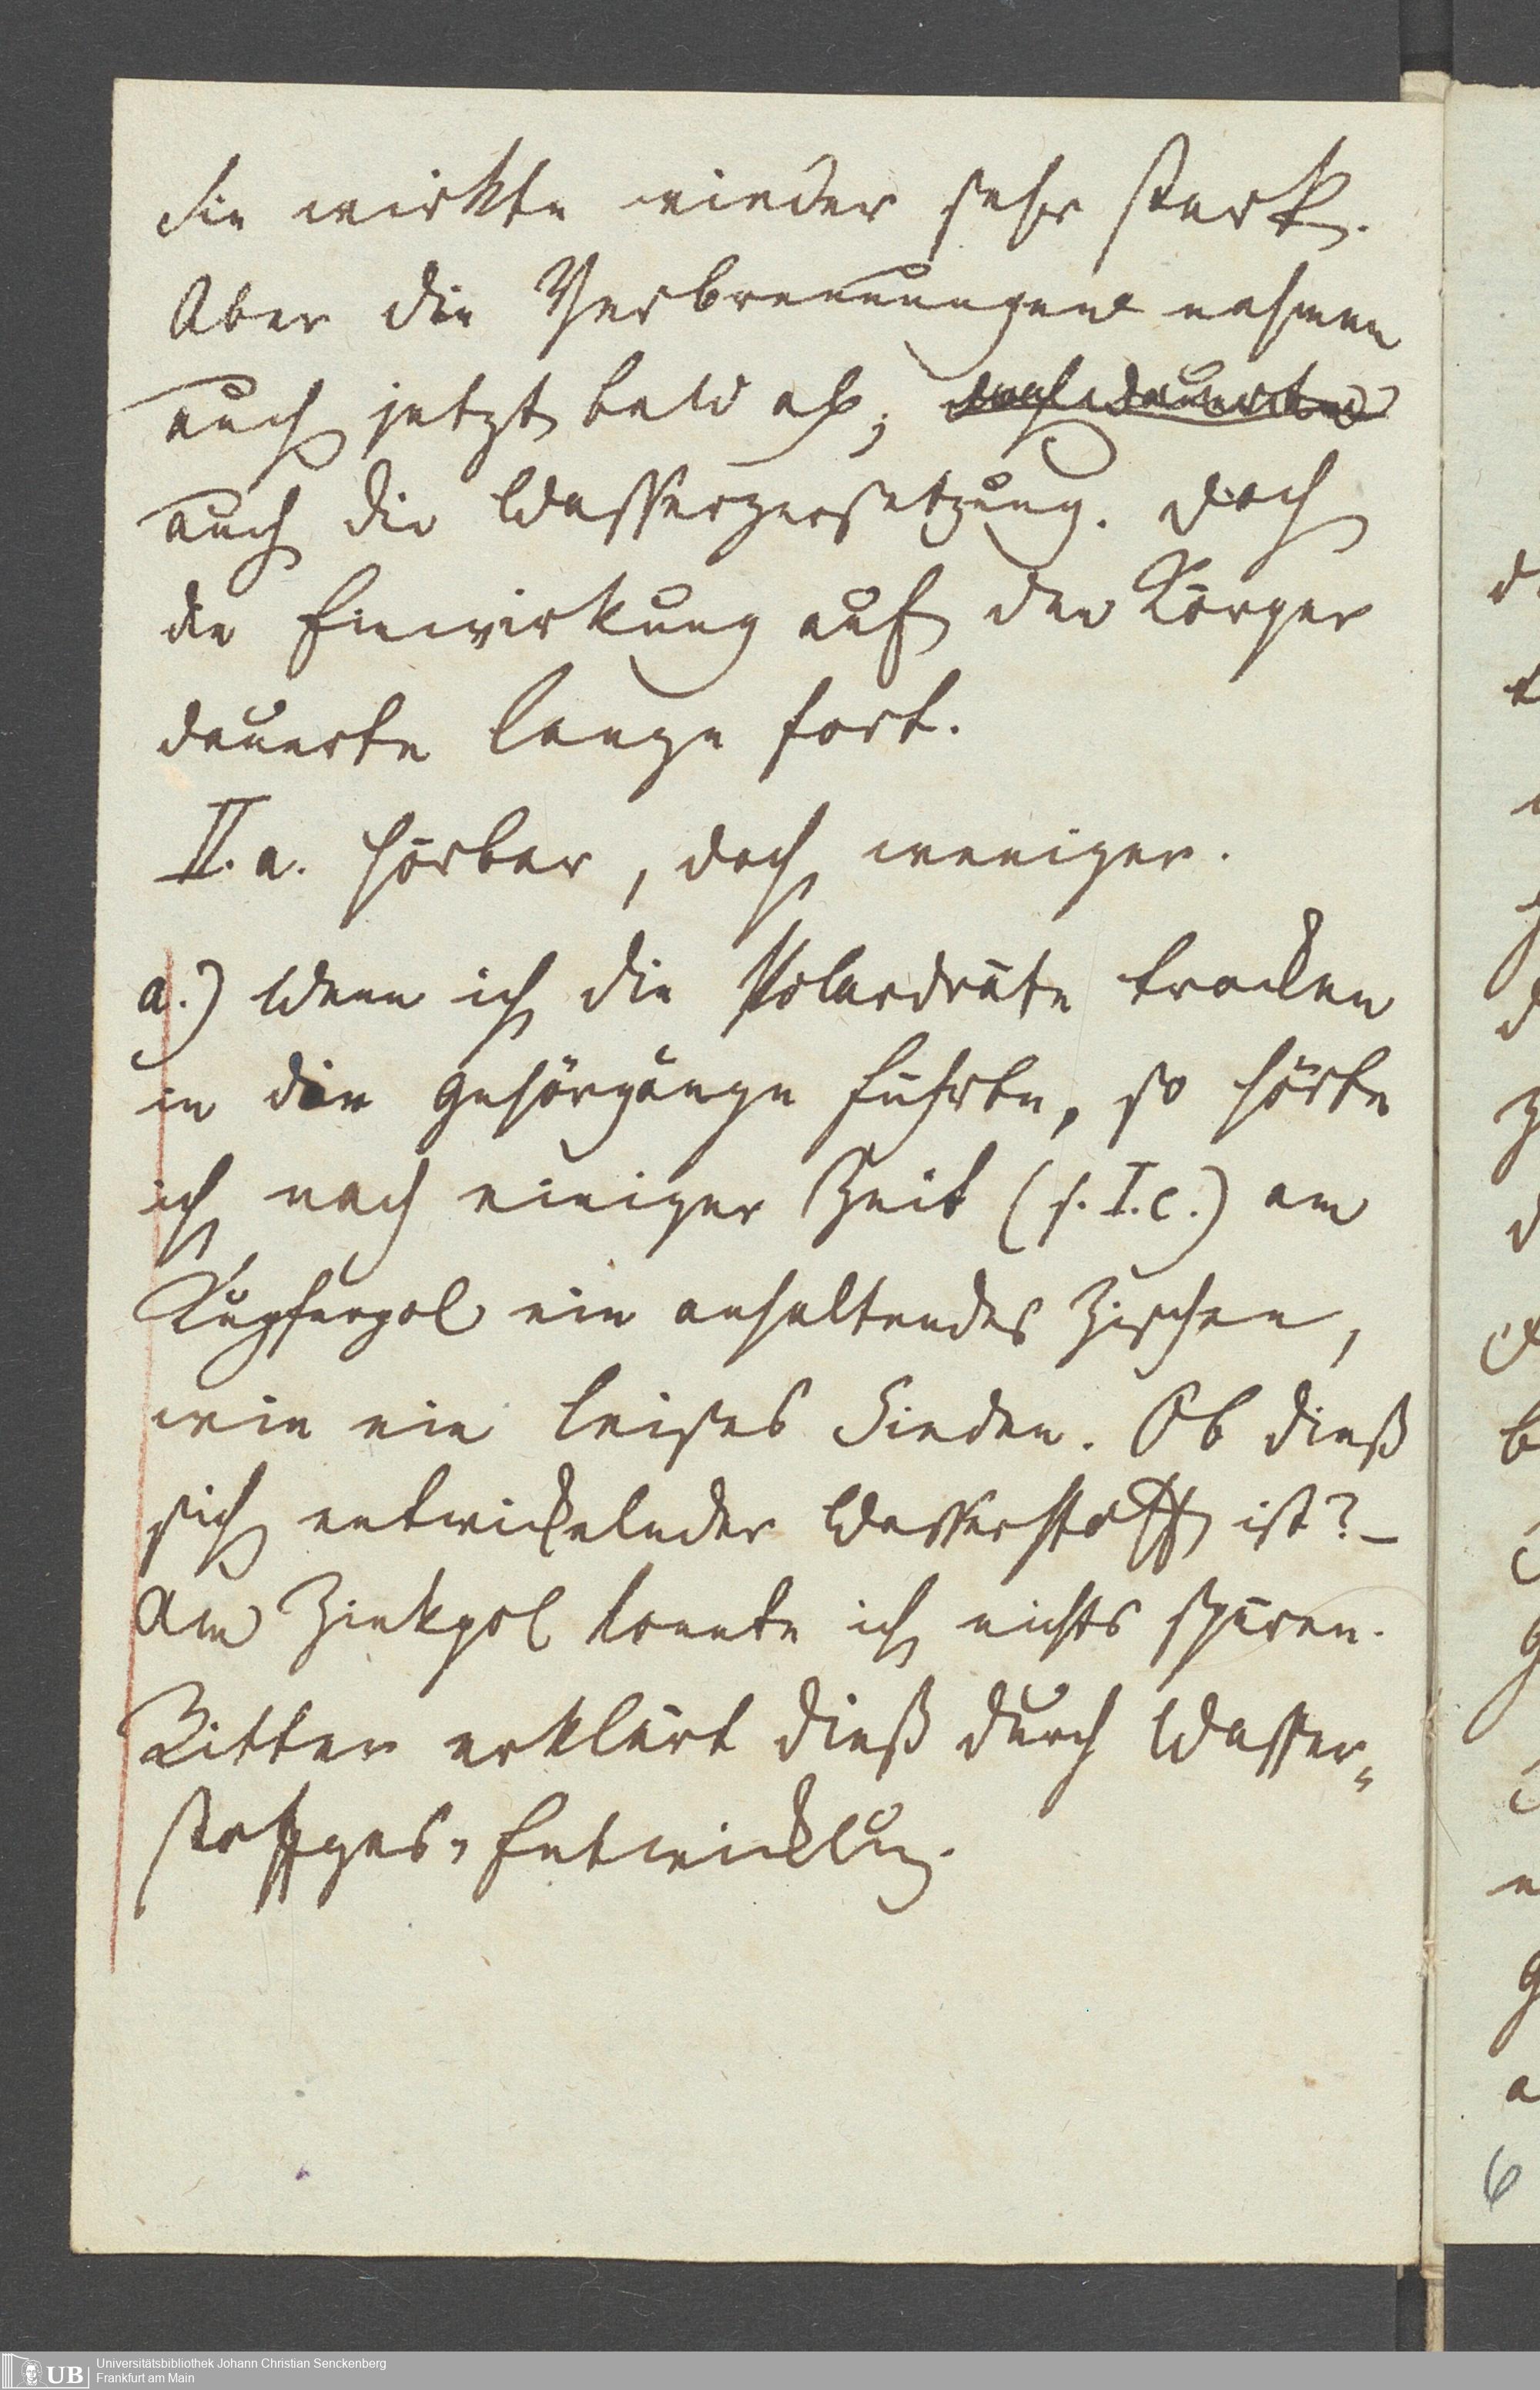 Sie wirkte wieder sehr stark.
Aber die Verbrennungen nahmen
auch jetzt bald ab; doch dauerte
auch die Wasserzersetzung. Doch
die Einwirkung auf den Körper
dauerte lange fort.
II. a. hörbar, doch weniger.
a.) Wenn ich die Polardräte trocken
in die Gehörgänge führte, so hörte
ich nach einiger Zeit (s. I. c.) am
Kupferpol ein anhaltendes Zischen,
wie ein leises Sieden. Ob dieß
sich entwickelnder Wasserstoff ist? –
Am Zinkpol konnte ich nichts spüren.
Ritter erklärt dieß durch Wasser=
stoffgas=Entwicklung.
6
UB
Universitätsbibliothek Johann Christian Senckenberg
Frankfurt am Main